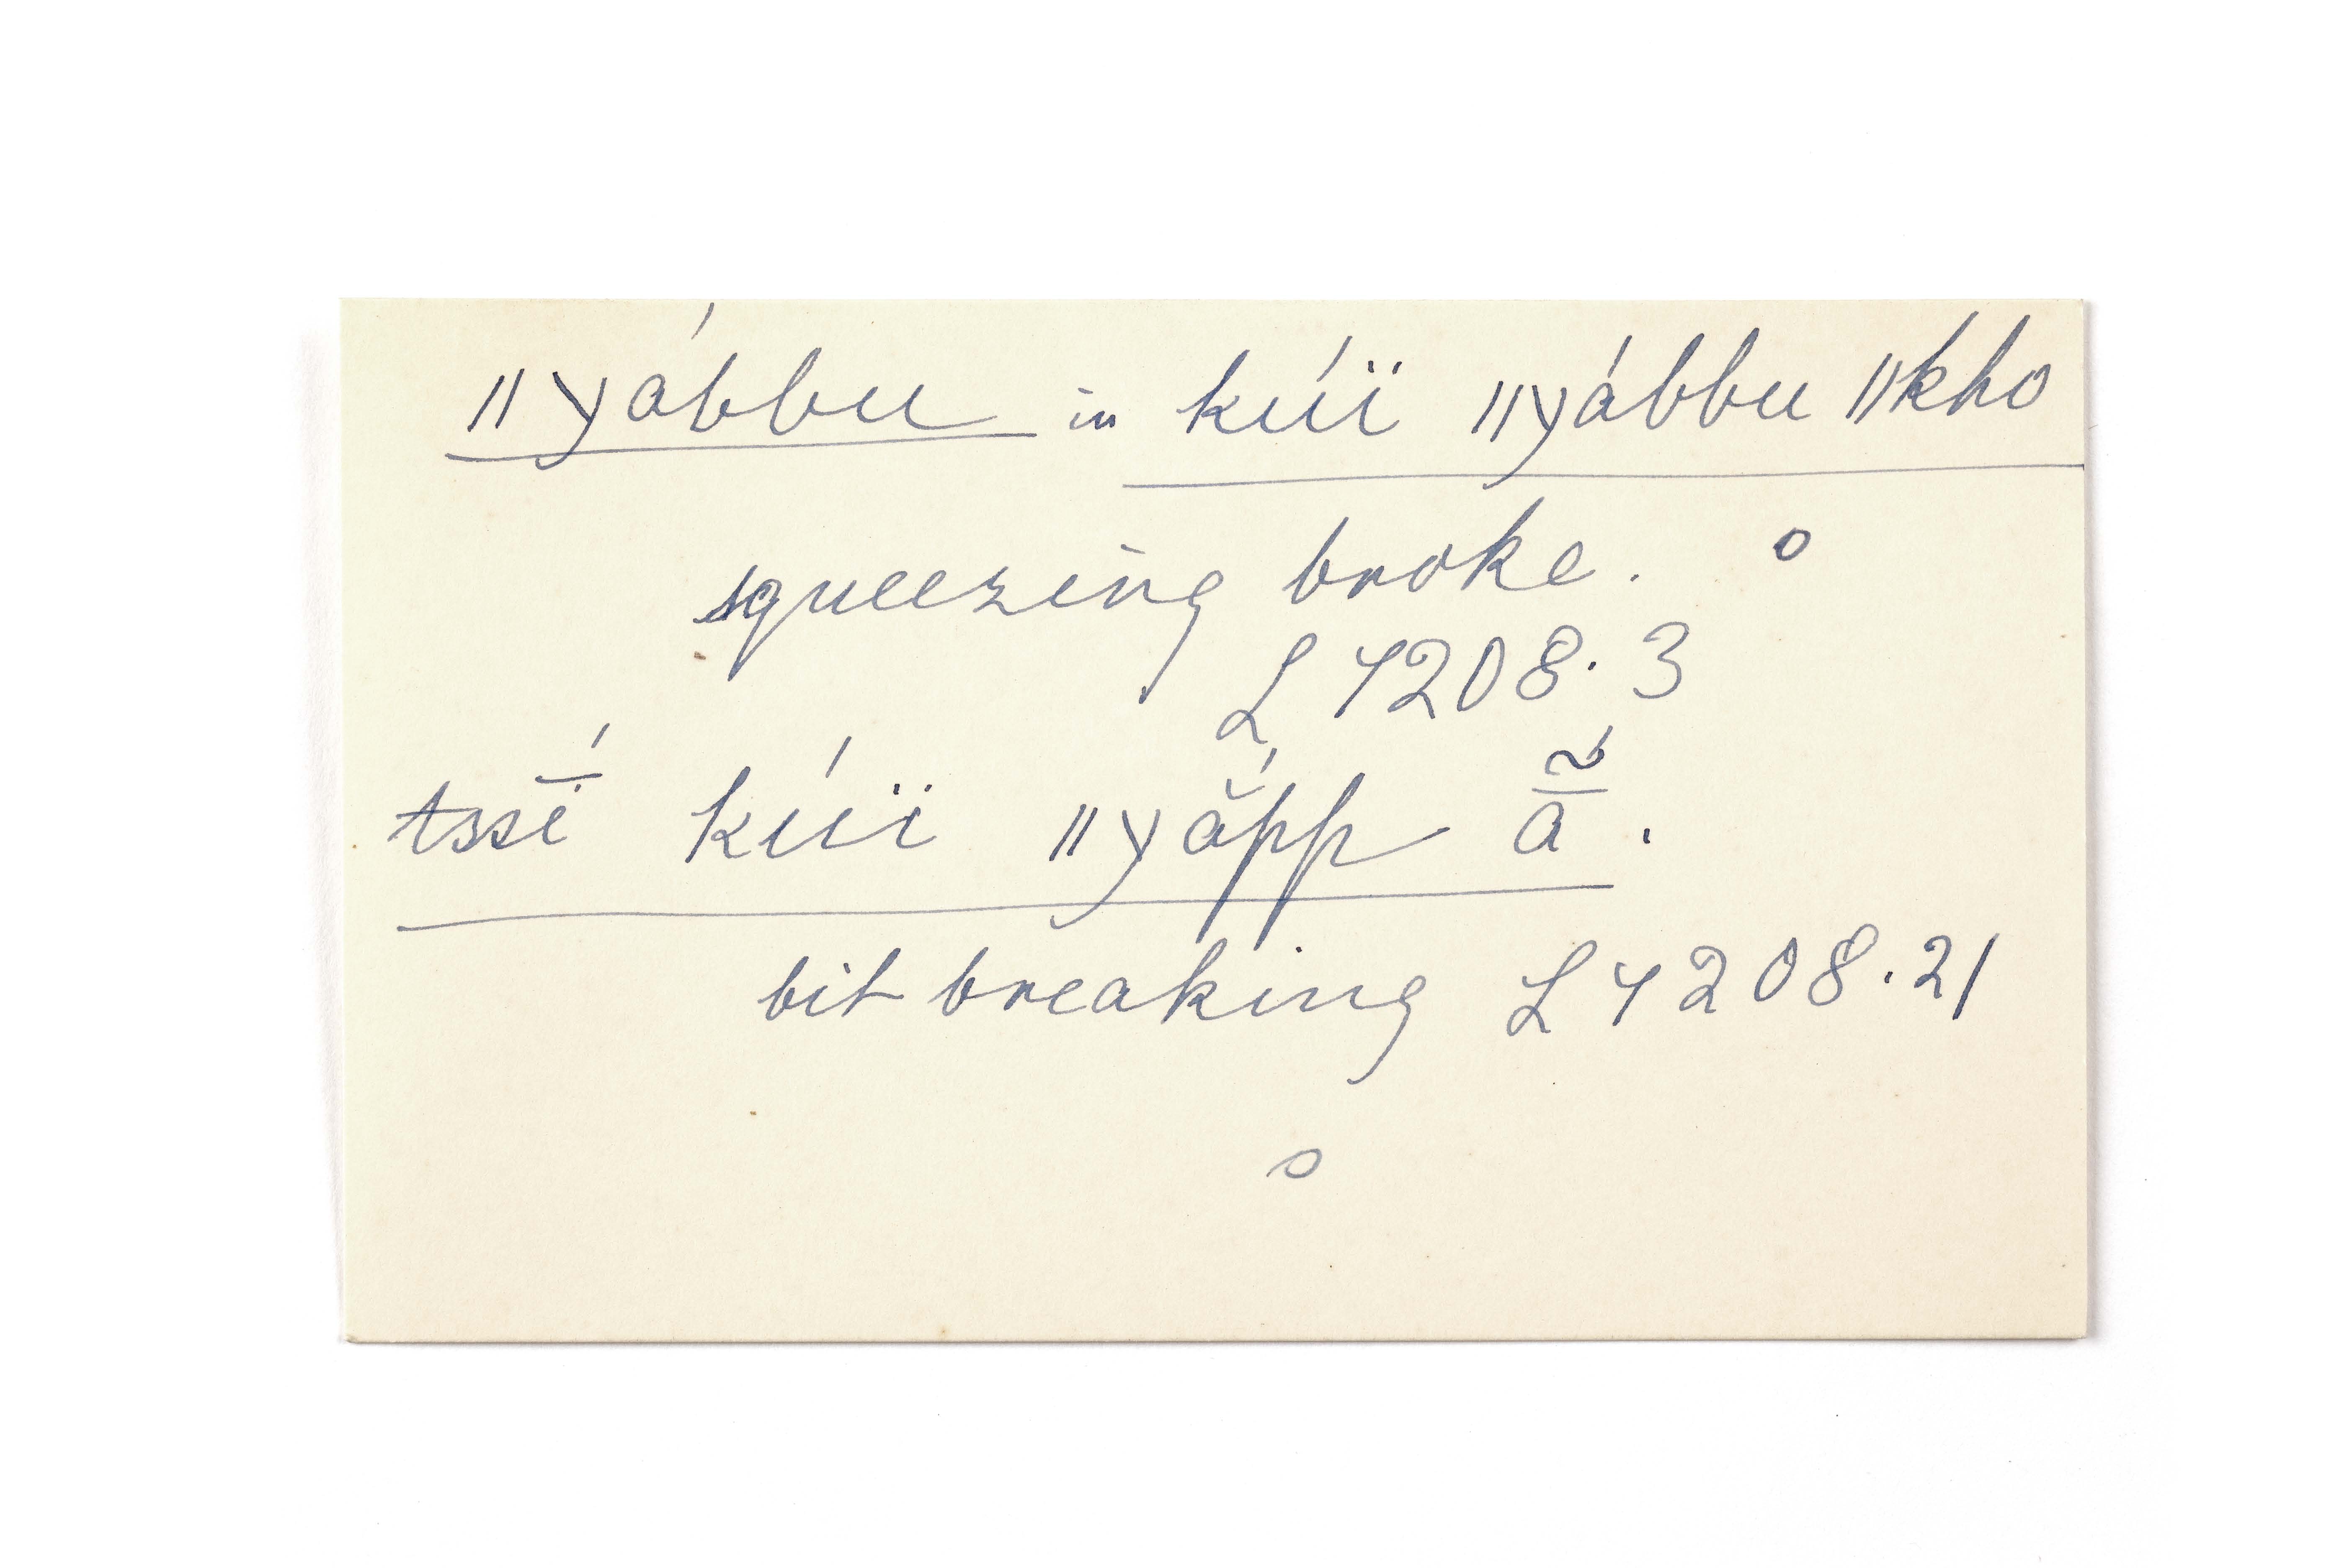 ǁyábbu in kúï ǁyábbu ǁkho
squeezing broke. o
L 4208.3
tssī́ kúï ǁyắpp ā̃́.
bit breaking L 4208.21
o